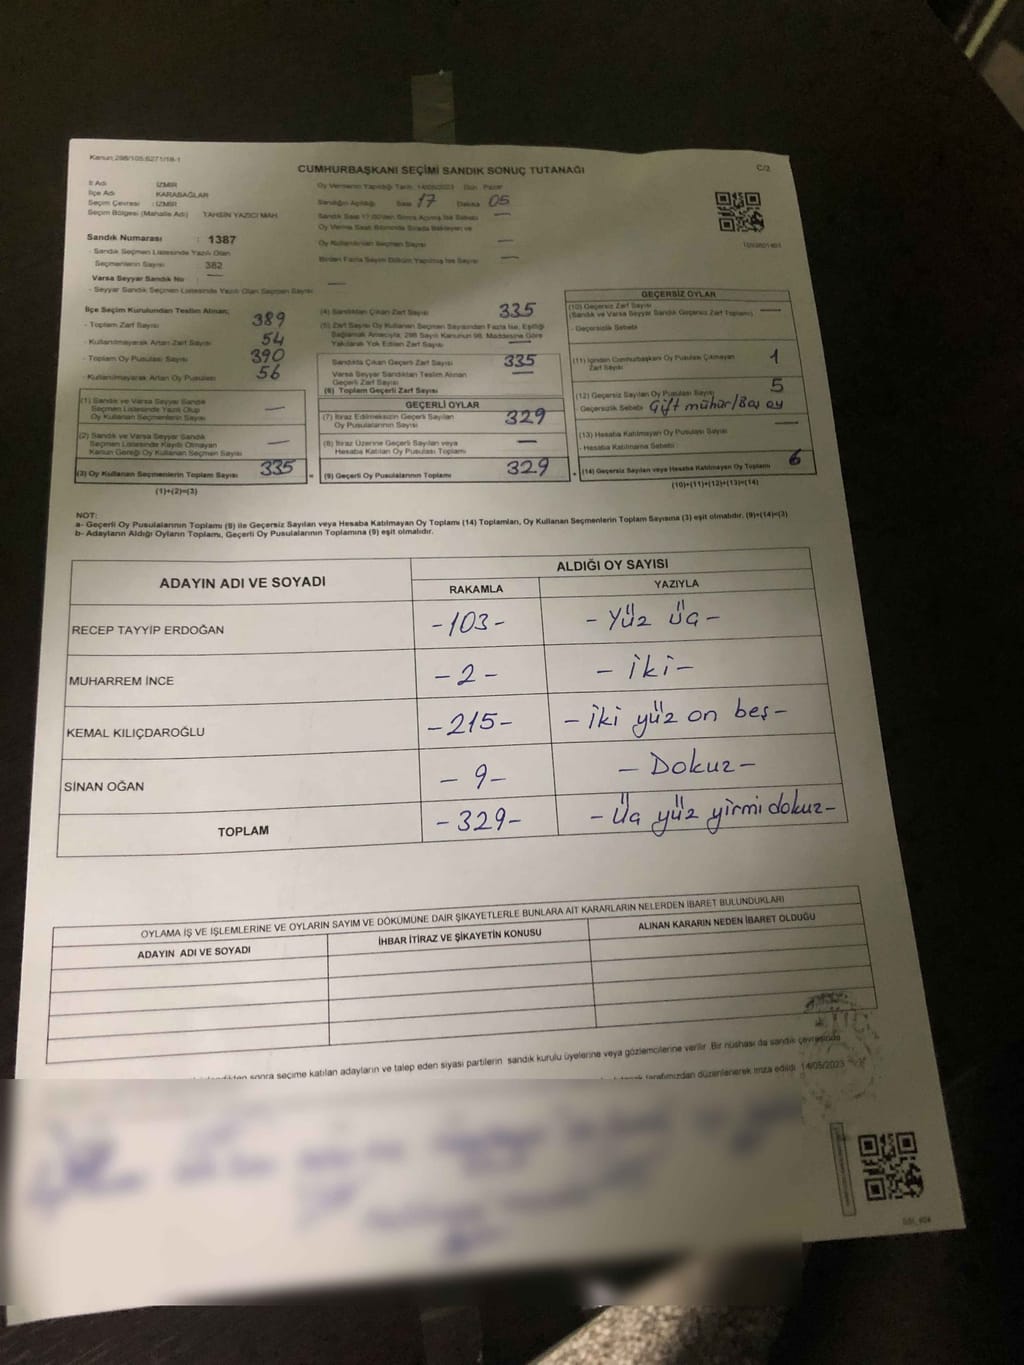 Kanun:298/105;6271/18-1
CUMHURBAŞKANI SEÇİMİ SANDIK SONUÇ TUTANAĞI
C/2
İl Adı : İZMİR
İlçe Adı : KARABAĞLAR
Seçim Çevresi : İZMİR
Seçim Bölgesi (Mahalle Adı) TAHSİN YAZICI MAH.
Oy Vermenin Yapıldığı Tarih: 14/05/2023 Gün: Pazar
Sandığın Açıldığı Saat 17 Dakika 05
Sandık Saat 17:00'den Sonra Açılmış İse Sebebi —
Oy Verme Saati Bitiminde Sırada Bekleyen ve
Oy Kullandırılan Seçmen Sayısı —
Birden Fazla Sayım Döküm Yapılmış İse Sayısı —
Sandık Numarası : 1387
- Sandık Seçmen Listesinde Yazılı Olan
Seçmenlerin Sayısı 382
Varsa Seyyar Sandık No : —
- Seyyar Sandık Seçmen Listesinde Yazılı Olan Seçmen Sayısı —
İlçe Seçim Kurulundan Teslim Alınan;
- Toplam Zarf Sayısı 389
- Kullanılmayarak Artan Zarf Sayısı 54
- Toplam Oy Pusulası Sayısı 390
- Kullanılmayarak Artan Oy Pusulası 56
(1) Sandık ve Varsa Seyyar Sandık
Seçmen Listesinde Yazılı Olup
Oy Kullanan Seçmenlerin Sayısı —
(2) Sandık ve Varsa Seyyar Sandık
Seçmen Listesinde Kayıtlı Olmayan
Kanun Gereği Oy Kullanan Seçmen Sayısı —
(3) Oy Kullanan Seçmenlerin Toplam Sayısı 335 =
(1)+(2)=(3)
(4) Sandıktan Çıkan Zarf Sayısı 335
(5) Zarf Sayısı Oy Kullanan Seçmen Sayısından Fazla İse, Eşitliği
Sağlamak Amacıyla; 298 Sayılı Kanunun 98. Maddesine Göre
Yakılarak Yok Edilen Zarf Sayısı —
Sandıkta Çıkan Geçerli Zarf Sayısı 335
Varsa Seyyar Sandıktan Teslim Alınan
Geçerli Zarf Sayısı —
(6) Toplam Geçerli Zarf Sayısı
GEÇERLİ OYLAR
(7) İtiraz Edilmeksizin Geçerli Sayılan
Oy Pusulasının Sayısı 329
(8) İtiraz Üzerine Geçerli Sayılan veya
Hesaba Katılan Oy Pusulası Toplamı —
(9) Geçerli Oy Pusulalarının Toplamı 329 +
GEÇERSİZ OYLAR
(10) Geçersiz Zarf Sayısı
(Sandık ve Varsa Seyyar Sandık Geçersiz Zarf Toplamı) —
- Geçersizlik Sebebi
(11) İçinden Cumhurbaşkanı Oy Pusulası Çıkmayan
Zarf Sayısı 1
(12) Geçersiz Sayılan Oy Pusulası Sayısı 5
- Geçersizlik Sebebi Çift mühür/Boş oy
(13) Hesaba Katılmayan Oy Pusulası Sayısı —
- Hesaba Katılmama Sebebi
(14) Geçersiz Sayılan veya Hesaba Katılmayan Oy Toplamı 6
(10)+(11)+(12)+(13)=(14)
NOT:
a- Geçerli Oy Pusulalarının Toplamı (9) ile Geçersiz Sayılan veya Hesaba Katılmayan Oy Toplamı (14) Toplamları, Oy Kullanan Seçmenlerin Toplam Sayısına (3) eşit olmalıdır. (9)+(14)=(3)
b- Adayların Aldığı Oyların Toplamı, Geçerli Oy Pusulalarının Toplamına (9) eşit olmalıdır.
ADAYIN ADI VE SOYADI
ALDIĞI OY SAYISI
RAKAMLA YAZIYLA
RECEP TAYYİP ERDOĞAN -103- - Yüz üç -
MUHARREM İNCE -2- - iki -
KEMAL KILIÇDAROĞLU -215- - iki yüz on beş -
SİNAN OĞAN -9- - Dokuz -
TOPLAM -329- - Üç yüz yirmi dokuz -
OYLAMA İŞ VE İŞLEMLERİNE VE OYLARIN SAYIM VE DÖKÜMÜNE DAİR ŞİKAYETLERLE BUNLARA AİT KARARLARIN NELERDEN İBARET BULUNDUKLARI
ADAYIN ADI VE SOYADI İHBAR İTİRAZ VE ŞİKAYETİN KONUSU ALINAN KARARIN NEDEN İBARET OLDUĞU
sonra seçime katılan adayların ve talep eden siyasi partilerin sandık kurulu üyelerine veya gözlemcilerine verilir. Bir nüshası da sandık çevresinde
tarafımızdan düzenlenerek imza edildi. 14/05/2023